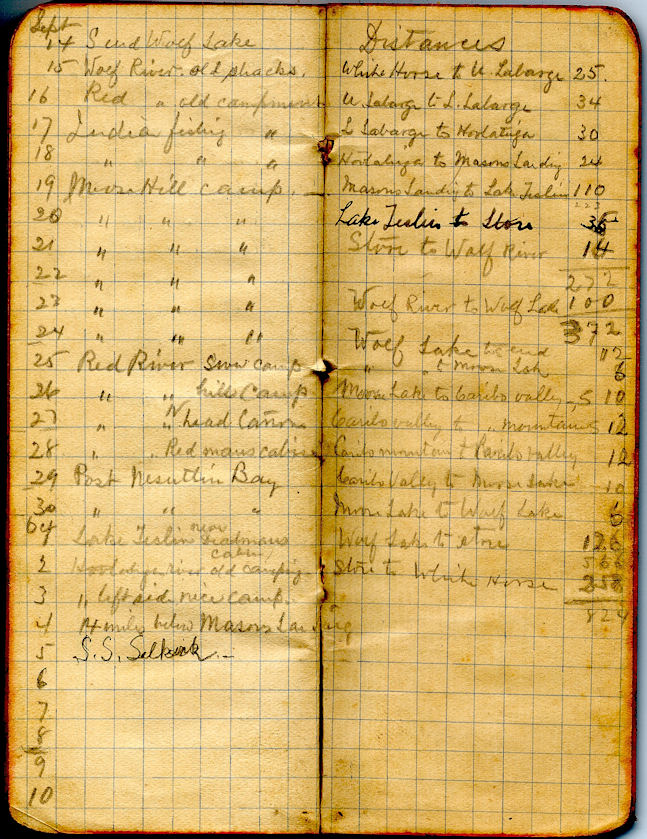 Sept
14 S end Wolf Lake
15 Wolf River old shacks.
16 Red " old campment
17 India fishing "
18 " " "
19 Moose Hill camp.
20 " " "
21 " " "
22 " " "
23 " " "
24 " " "
25 Red River snow camp
26 " " hill Camp
27 " " N head Canon
28 " " Red mans cabin
29 Post Nesutlin Bay
30 " " "
Oct
1 Lake Teslin near Deadmans cabin
2 river old camping
3 " left side nice camp.
4 miles below Masons Landing
5 S.S. Selkirk.
6
7
8
9
10
Distances
White Horse to U. Labarge 25.
U Labarge to L. Labarge 34
L Labarge to Hootalinqa 30
Hootalinqa to Masons Landing 24
Masons Landing to Lake Teslin 110
223
Lake Teslin to Store 35
Store to Wolf River 14
272
Wolf River to Wolf Lake 100
372
Wolf Lake to end 12
" " to Moose Lak 6
Moose Lake to Caribo valley 10
Caribo valley to " mountains 12
Caribo mountain to Caribo valley 12
Caribo Valley to Moose Lake 10
Moose Lake to Wolf Lake 6
Wolf Lake to store
Store to White Horse 258
824